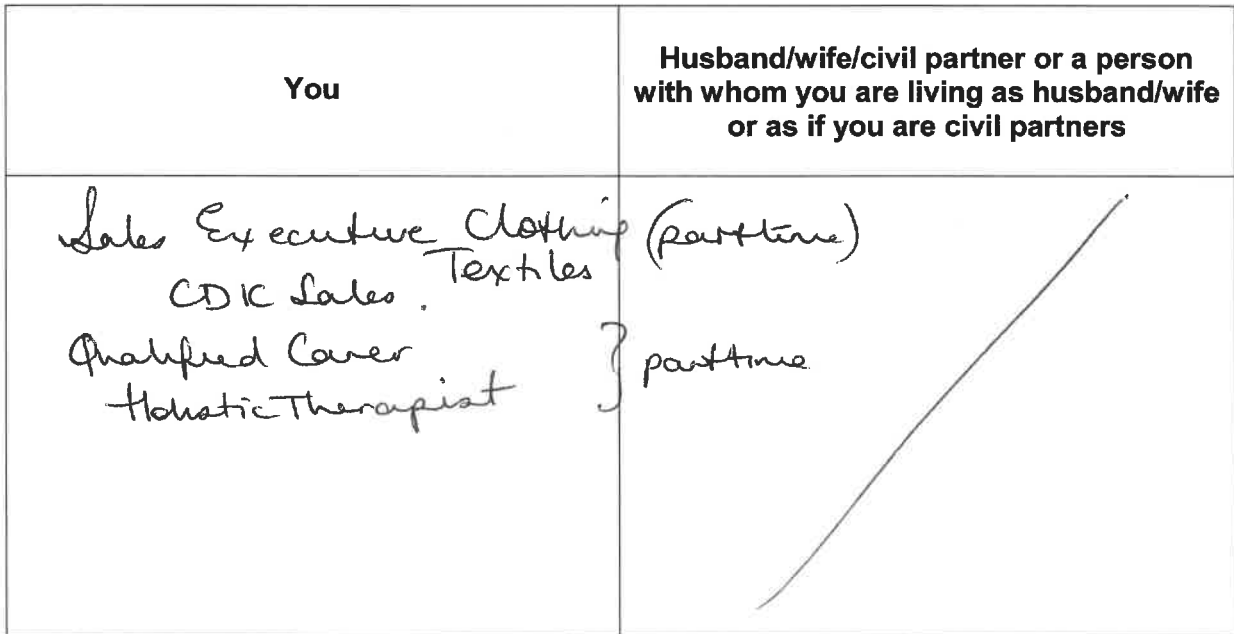 You
Husband/wife/civil partner or a person
with whom you are living as husband/wife
or as if you are civil partners
Sales Executive Clothing (parttime)
Textiles
CDK Sales.
Qualified Carer
Holistic Therapist
} parttime